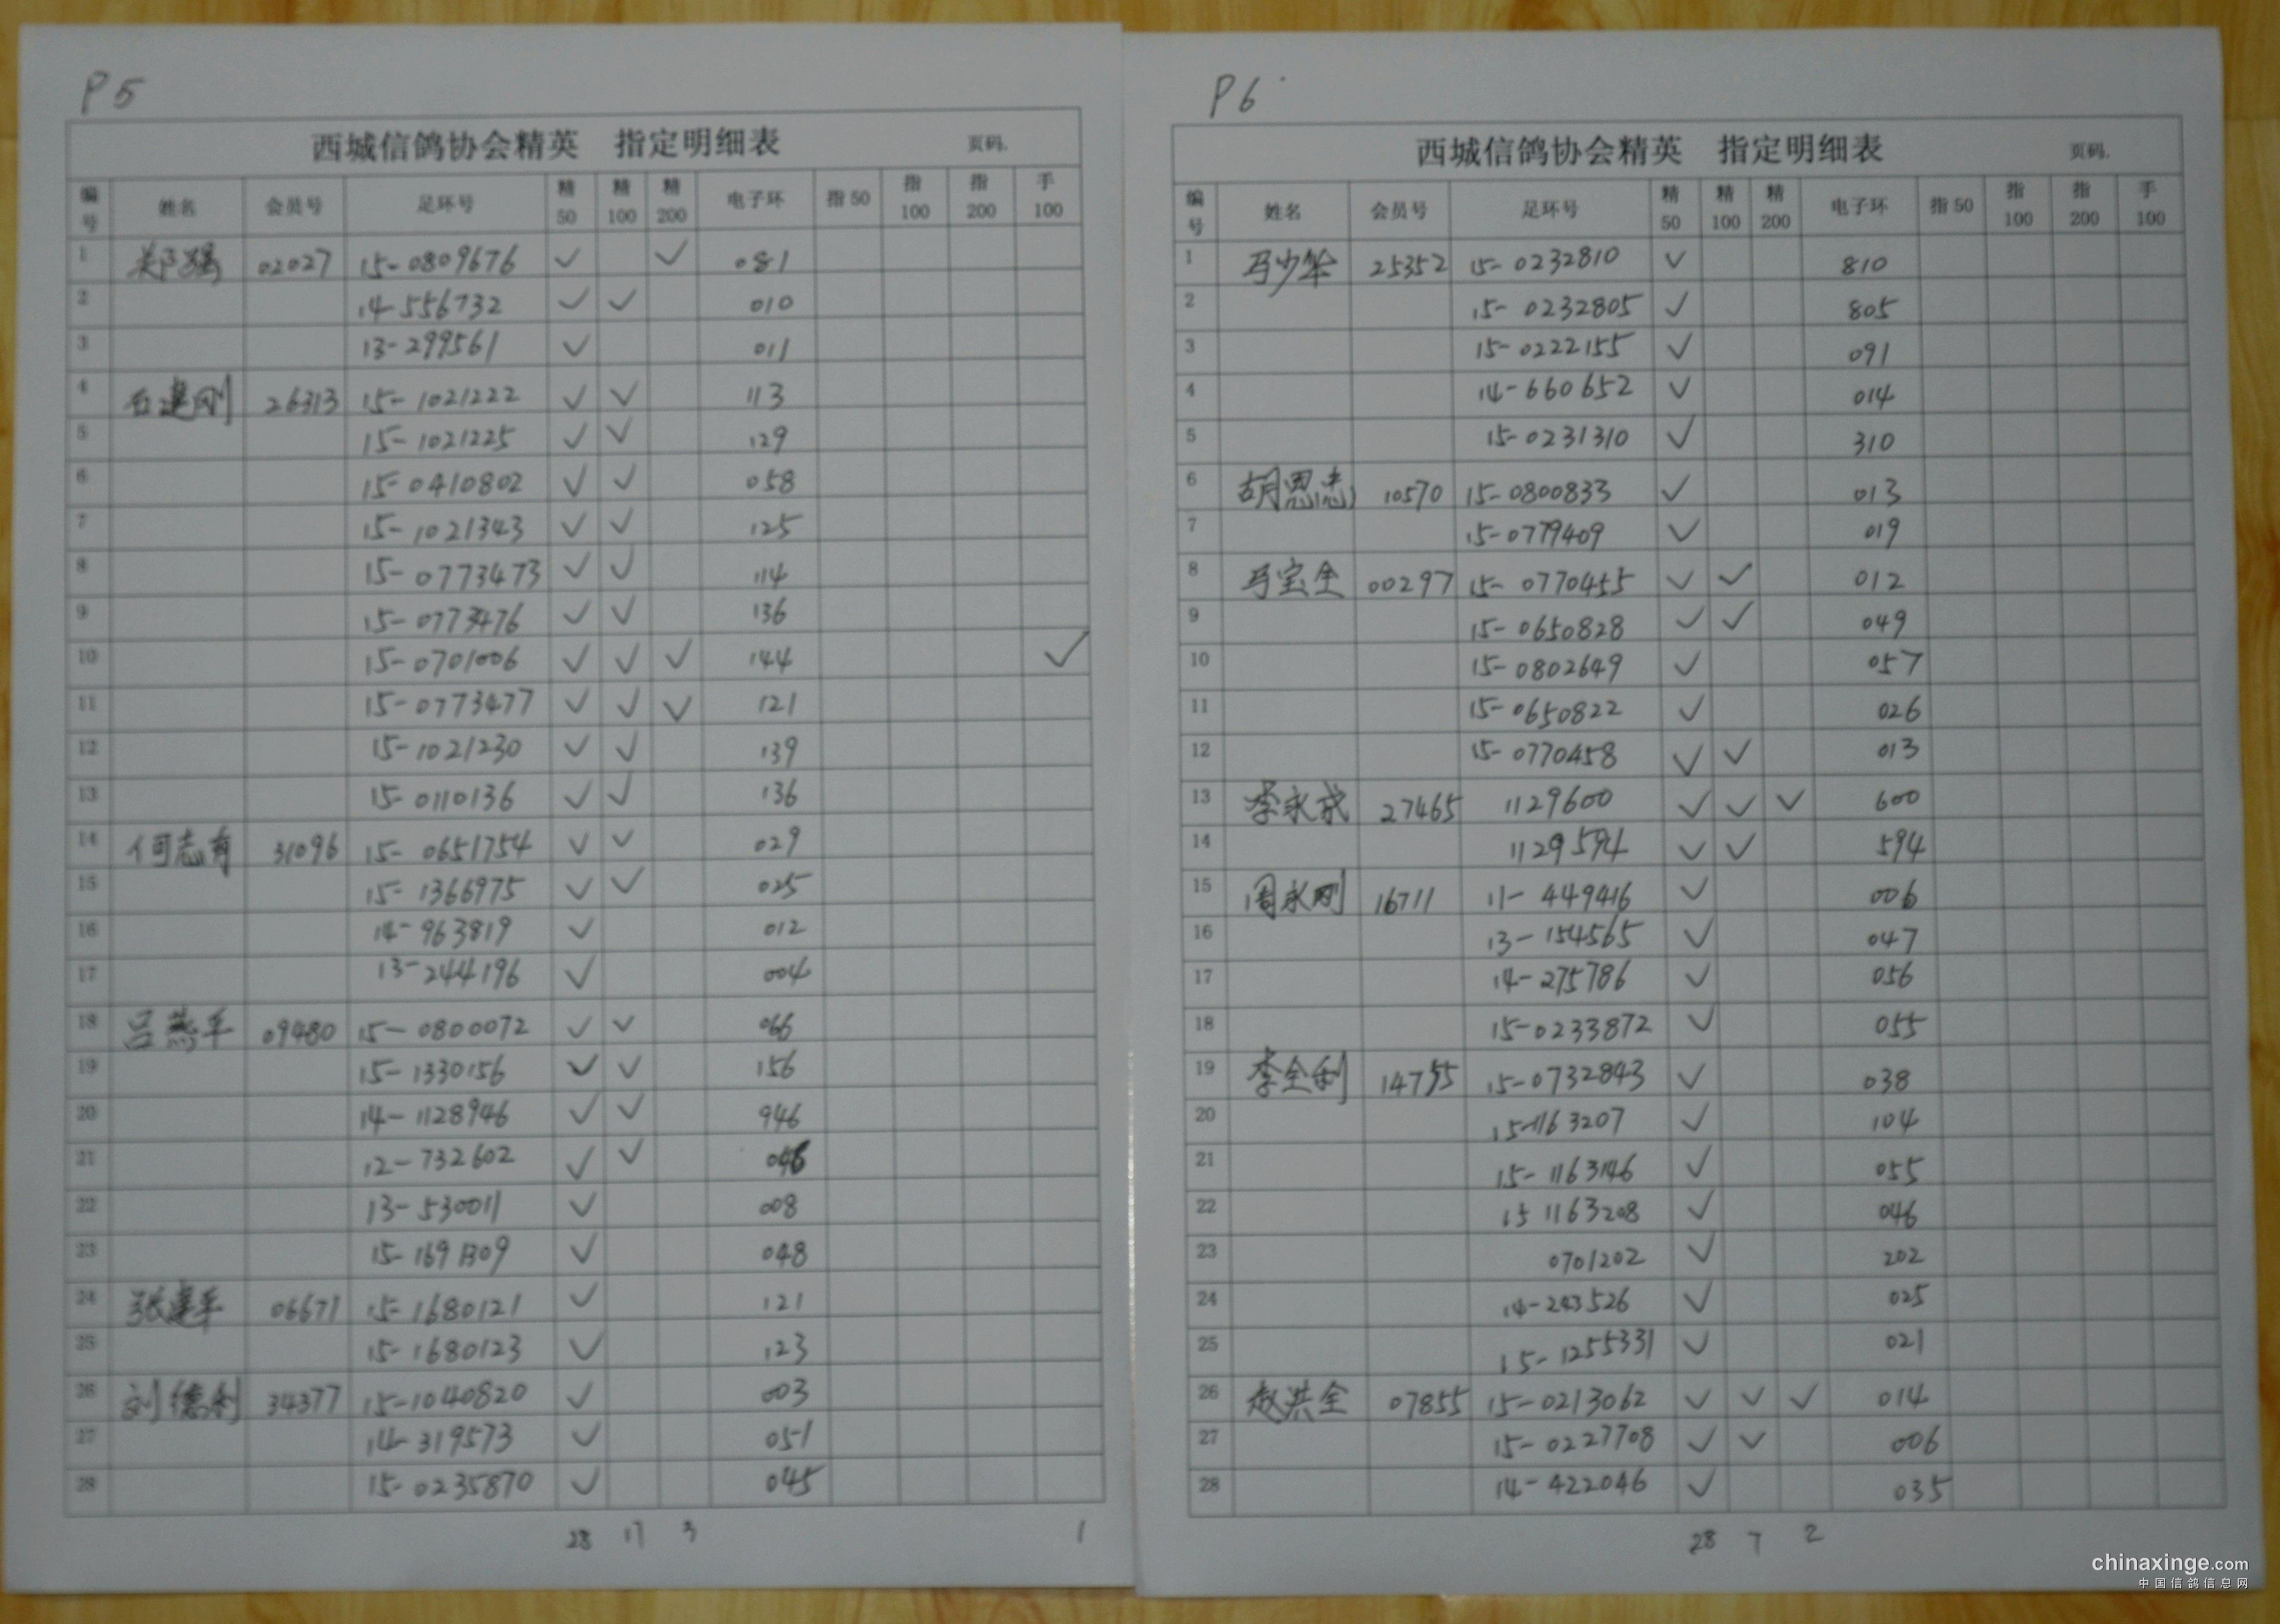 P5
西城信鸽协会精英 指定明细表 页码.
编号 姓名 会员号 足环号 精50 精100 精200 电子环 指50 指100 指200 手100
1 02027 15-0809676 ✓ ✓ 081
2 14-556732 ✓ ✓ 010
3 13-299561 ✓ 011
4 石建刚 26313 15-1021222 ✓ ✓ 113
5 15-1021225 ✓ ✓ 129
6 15-0410802 ✓ ✓ 058
7 15-1021343 ✓ ✓ 125
8 15-0773473 ✓ ✓ 114
9 15-0773476 ✓ ✓ 136
10 15-0701006 ✓ ✓ ✓ 144 ✓
11 15-0773477 ✓ ✓ ✓ 121
12 15-1021230 ✓ ✓ 139
13 15-0110136 ✓ ✓ 136
14 何志有 31096 15-0651754 ✓ ✓ 029
15 15-1366975 ✓ ✓ 025
16 14-963819 ✓ 012
17 13-244196 ✓ 004
18 吕燕平 09480 15-0800072 ✓ ✓ 066
19 15-1330156 ✓ ✓ 156
20 14-1128946 ✓ ✓ 946
21 12-732602 ✓ ✓
22 13-530011 ✓ 008
23 15-1691309 ✓ 048
24 张建平 06671 15-1680121 ✓ 121
25 15-1680123 ✓ 123
26 刘德利 34377 15-1040820 ✓ 003
27 14-319573 ✓ 051
28 15-0235870 ✓ 045
28 17 3 1
P6
西城信鸽协会精英 指定明细表 页码.
编号 姓名 会员号 足环号 精50 精100 精200 电子环 指50 指100 指200 手100
1 马少华 25352 15-0232810 ✓ 810
2 15-0232805 ✓ 805
3 15-0222155 ✓ 091
4 14-660652 ✓ 014
5 15-0231310 ✓ 310
6 胡思忠 10570 15-0800833 ✓ 013
7 15-0779409 ✓ 019
8 马宝全 00297 15-0770455 ✓ ✓ 012
9 15-0650828 ✓ ✓ 049
10 15-0802649 ✓ 057
11 15-0650822 ✓ 026
12 15-0770458 ✓ ✓ 013
13 李永成 27465 1129600 ✓ ✓ ✓ 600
14 1129594 ✓ ✓ 594
15 周永刚 16711 11-449416 ✓ 006
16 13-154565 ✓ 047
17 14-275786 ✓ 056
18 15-0233872 ✓ 055
19 李全利 14755 15-0732843 ✓ 038
20 15-1163207 ✓ 104
21 15-1163146 ✓ 055
22 15 1163208 ✓ 046
23 0701202 ✓ 202
24 14-243526 ✓ 025
25 15-1255331 ✓ 021
26 赵洪全 07855 15-0213062 ✓ ✓ ✓ 014
27 15-0227708 ✓ ✓ 006
28 14-422046 ✓ 035
28 7 2
chinaxinge.com
中国信鸽信息网